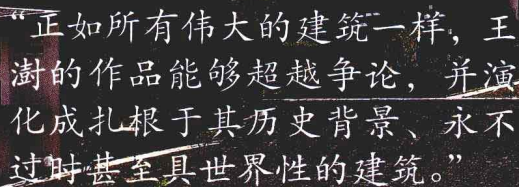 “正如所有伟大的建筑一样，王
澍的作品能够超越争论，并演
化成扎根于其历史背景、永不
过时甚至具世界性的建筑。”